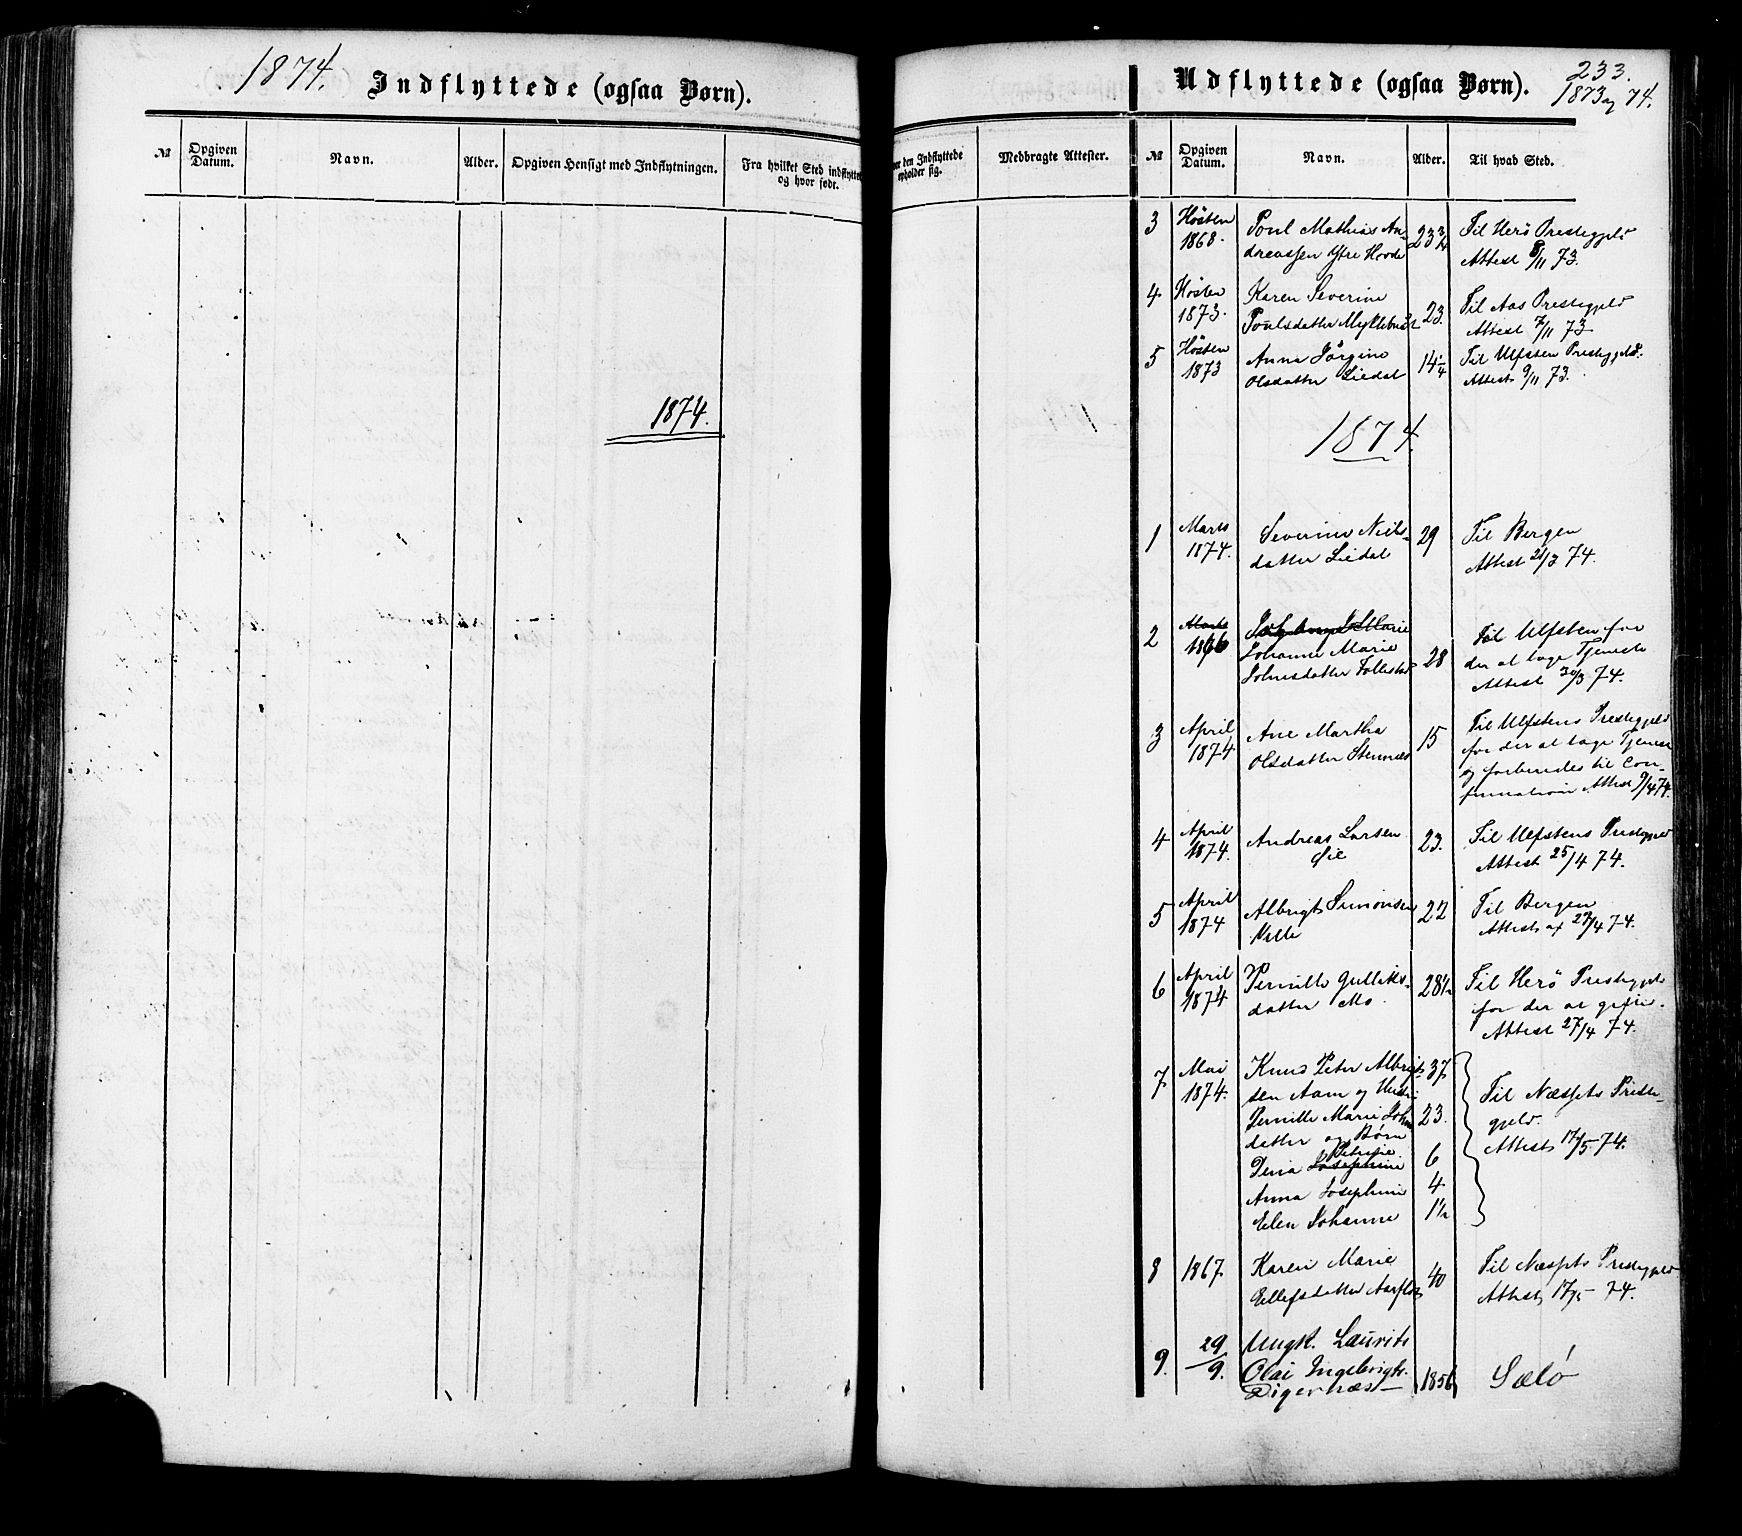 1874.
Indflyttede (ogsaa Børn).
№
Opgiven
Datum.
Navn.
Alder.
Opgiven Hensigt med Indflytningen.
Fra hvilket Sted indflytte
og hvor født.
1874.
Hvor den Indflyttede
opholder sig.
Medbragte Attester.
Udflyttede (ogsaa Børn).
233.
1873 og 74.
№
Opgiven
Datum.
Navn.
Alder.
Til hvad Sted.
3
Høsten
1868.
Poul Mathias An-
dreassen Ytre Hovde
23 3/4
Til Herø Prestegjeld
Attest 8/11 73.
4
Høsten
1873.
Karen Severine
Poulsdatter Myklebust
23.
Til Aas Prestegjeld
Attest 7/11 73
5
Høsten
1873
Anna Jørgine
Olsdatter Liedal
14 1/4
Til Ulfsten Prestegjeld.
Attest 9/11 73.
1874.
1
Marts
1874.
Severine Niels-
datter Liedal
29
Til Bergen
Attest 21/3 74.
2
Marts
1866
Johanne Marie
Johnsdatter Follestad
28
Til Ulfsten for
der at tage Tjeneste
Attest 30/3 74.
3
April
1874
Ane Martha
Olsdatter Stennæs
15
Til Ulfstens Prestegjeld
for der at tage Tjeneste
og forberedes til Con-
firmation Attest 9/4 74.
4
April
1874.
Andreas Larsen
Øie
23.
Til Ulfstens Prestegjeld
Attest 25/4 74.
5
April
1874
Albrigt Simonsen
Velle
22
Til Bergen
Attest af 27/4 74.
6
April
1874
Pernille Gulliks-
datter Mo
28 1/2
Til Herø Prestegjeld
for der at giftes.
Attest 27/4 74.
7
Mai
1874.
Knud Peter Albrigt-
sen Aam og Hustru
Pernille Marie Johns
datter og Børn
Petrine
Dena Josephine
Anna Josephine
Elen Johanne
37
23.
6
4
1 1/2
Til Næssets Preste-
gjeld.
Attest 17/5 74.
8
1867
Karen Marie
Ellefsdatter Aarflot
40
Til Næssets Prestegjeld
Attest 17/5 74.
9.
29/9.
Ungk. Laurits
Olai Ingebrigts.
Digernæs
1856
Sælø